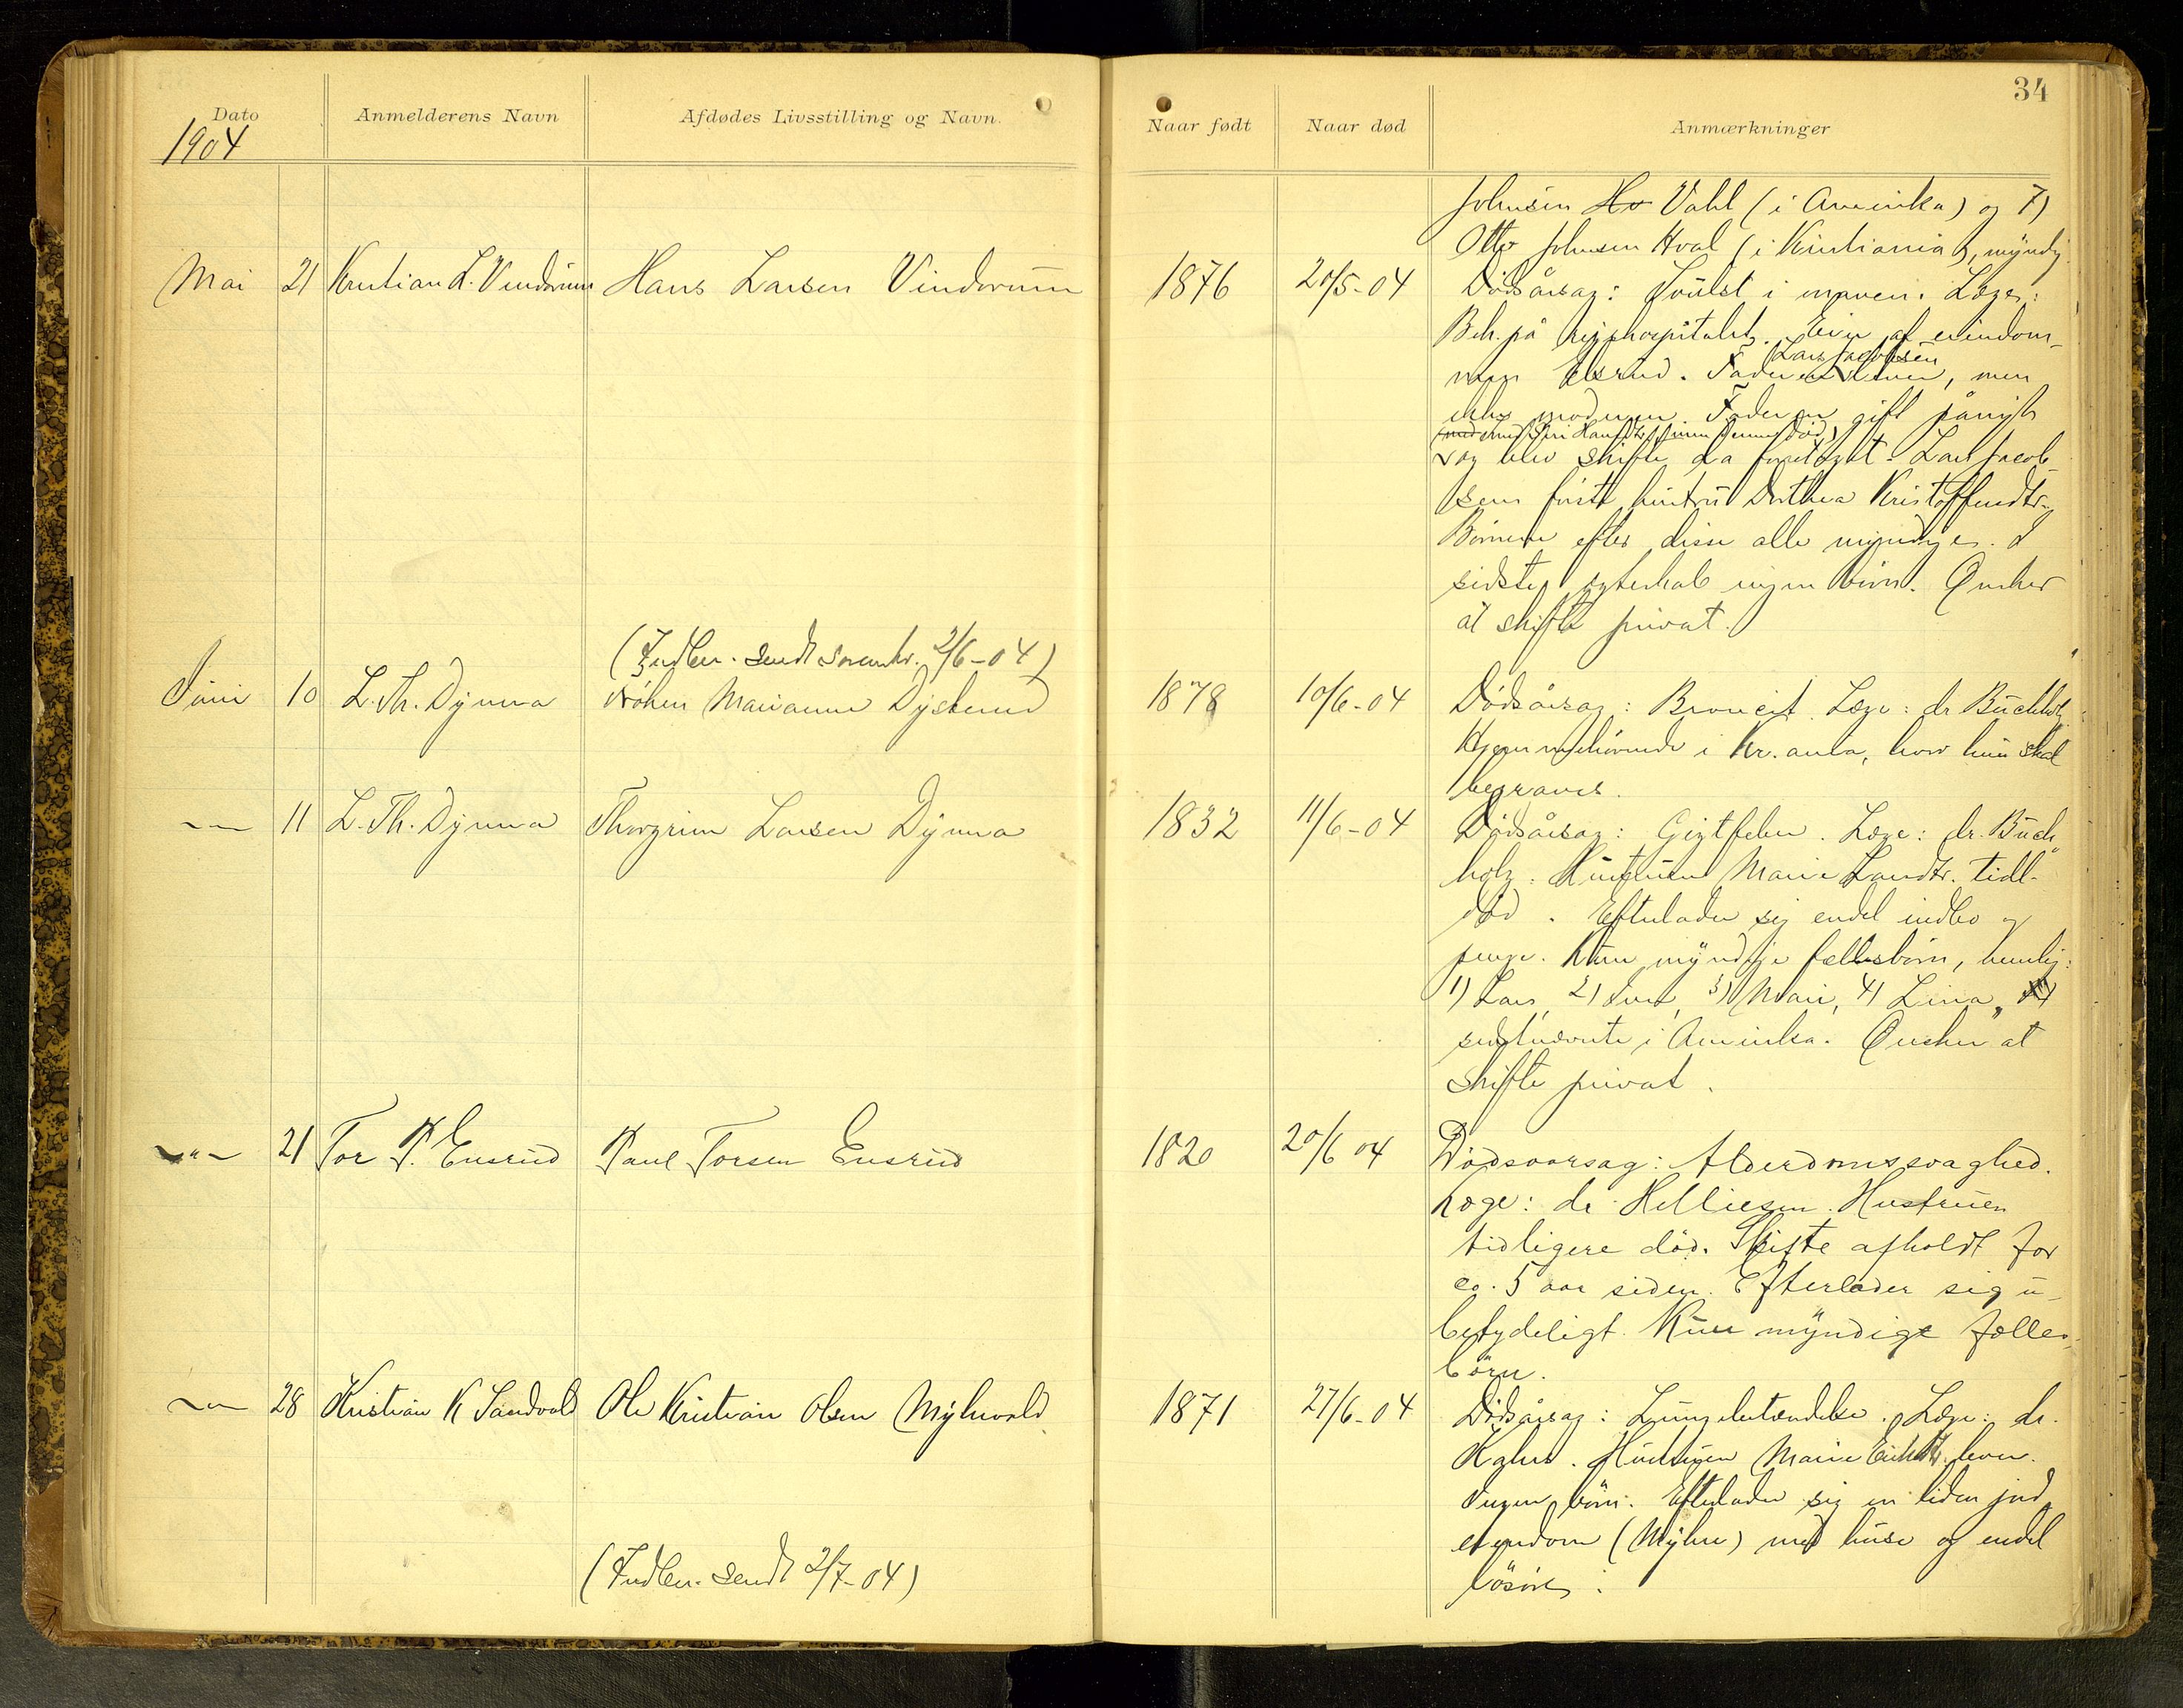 34
Dato
Anmelderens Navn
Afdødes Livsstilling og Navn.
Naar født
Naar død
Anmærkninger
1904
Johnsen Ho Vahl (i Amerika) og 7)
Otto Johnsen Hval (i Kristiania), myndig
Mai 21 Kristian L. Vindorum Hans Larsen Vindorum 1876 20/5-04 Dödsårsag: Svulst i maven. Læge:
Beh. på rigshospitalet. Eier af eiendom-
men Elsrud. Faderen Lars Jacobsen lever, men
ikke moderen. Faderen gift påny
med Siri Hansdtr
og blev skifte da foretaget. Lars Jacob-
sens förste hustru Dorthea Kristoffersdtr.
Börnene efter disse alle myndige. I
sidste egteskab ingen börn. Önsker
at skifte privat.
(Indber. sendt sorenskr. 2/6-04)
Juni 10 L. Th. Dynna Fröken Marianne Dysterud 1878 10/6-04 Dödsårsag: Broncit. Læge: dr Buchholz.
Hjemmehörende i Kr.ania, hvor hun skal
begraves.
-"- 11 L. Th. Dynna Thorgrim Larsen Dynna 1832 11/6-04 Dödsårsag: Gigtfeber. Læge: dr. Buch-
holz. Hustruen Marie Larsdtr. tidl.
död. Efterlader sig endel indbo og
penge. Kun myndige fællesbörn, nemlig:
1) Lars, 2) 3) Mari, 4) Lina,
sidstnævnte i Amerika. Önsker at
skifte privat.
-"- 21 Tor P. Ensrud Paul Torsen Ensrud 1820 20/6 04 Dödsaarsag: Alderdomssvaghed.
Læge: dr Helliesen. Hustruen
tidligere död. Skifte afholdt for
ca. 5 aar siden. Efterlader sig u-
betydeligt. Kun myndige fælles-
börn.
-"- 28 Kristian K Sandvold Ole Kristian Olsen Myhrvold 1871 27/6-04 Dödsårsag: Lungebetændelse. Læge: dr.
Hustruen Marie lever.
Ingen börn. Efterlader sig en liden jord-
eiendom (Myhre) med huse og endel
lösöre.
(Indber. sendt 2/7-04)